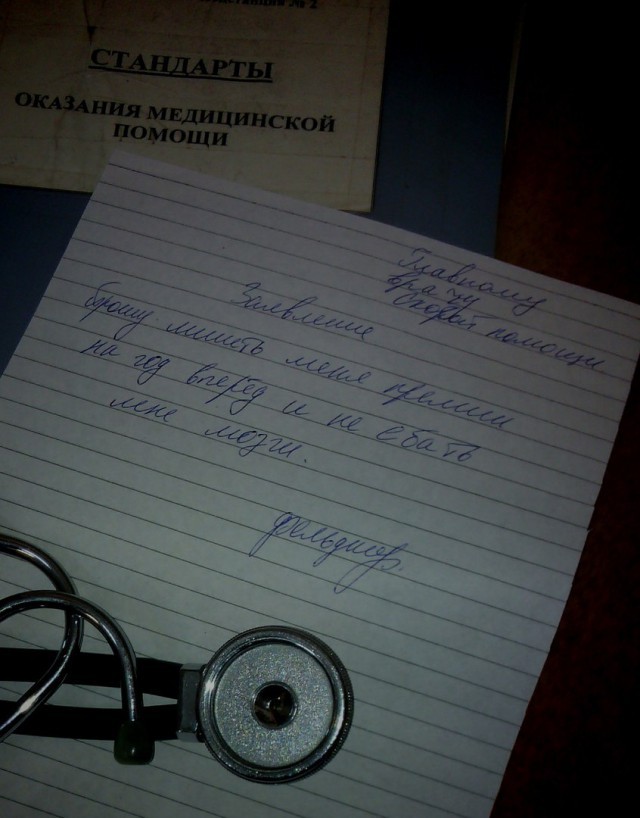 № 2
СТАНДАРТЫ
ОКАЗАНИЯ МЕДИЦИНСКОЙ
ПОМОЩИ
Главному
врачу
Скорой помощи
Заявление
Прошу лишить меня премии
на год вперёд и не ебать
мне мозги.
фельдшер.